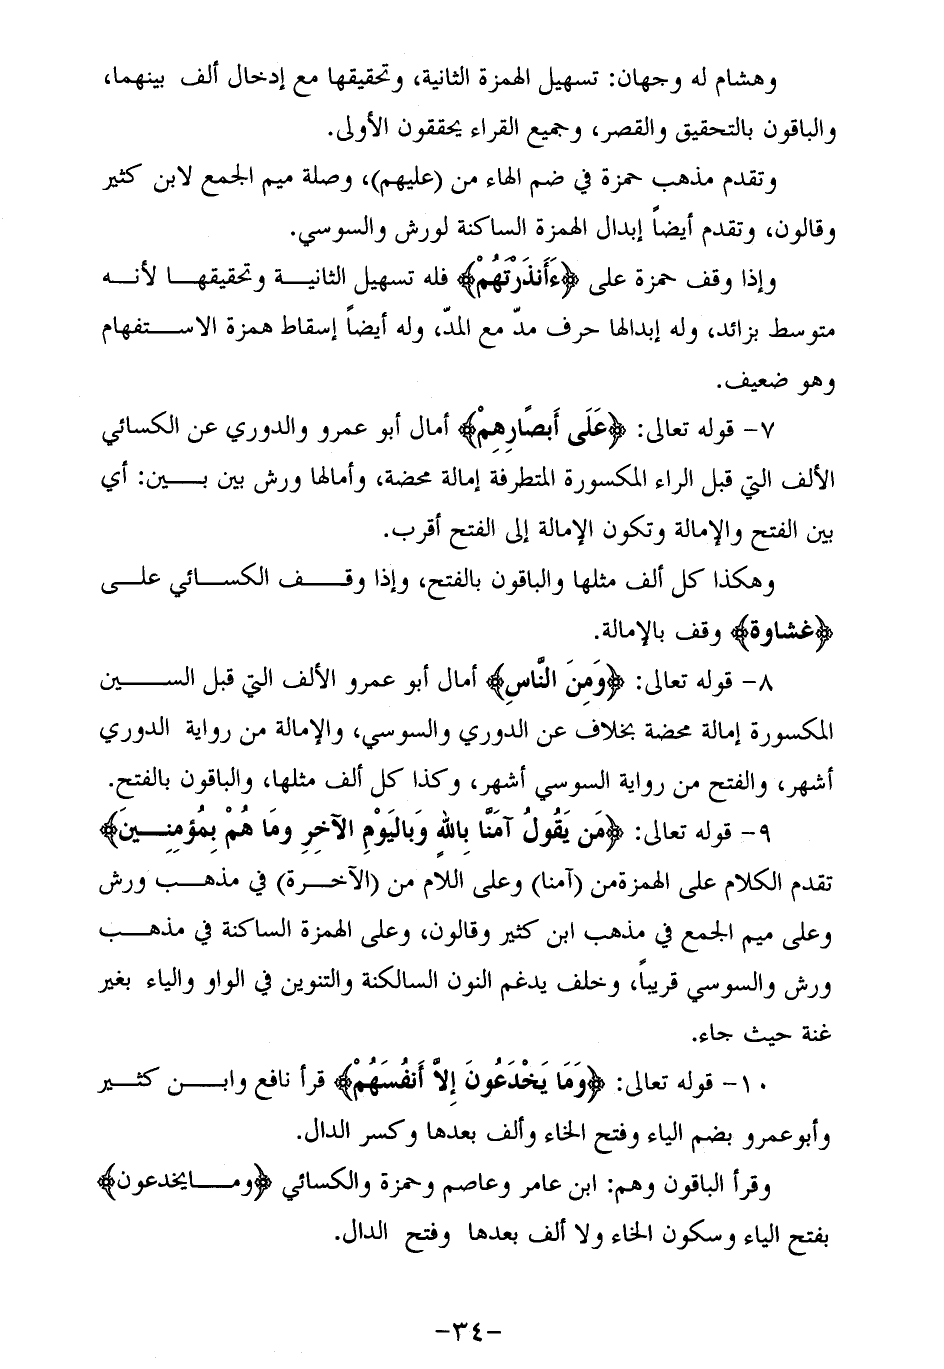 وهشام له وجهان: تسهيل الهمزة الثانية، وتحقيقها مع إدخال ألف بينهما،
والباقون بالتحقيق والقصر، وجميع القراء يحققون الأولى.
وتقدم مذهب حمزة في ضم الهاء من (عليهم)، وصلة ميم الجمع لابن كثير
وقالون، وتقدم أيضاً إبدال الهمزة الساكنة لورش والسوسي.
وإذا وقف حمزة على ﴿ءَأَنذَرْتَهُمْ﴾ فله تسهيل الثانية وتحقيقها لأنه
متوسط بزائد، وله إبدالها حرف مدّ مع المدّ، وله أيضاً إسقاط همزة الاستفهام
وهو ضعيف.
٧- قوله تعالى: ﴿عَلَى أَبصَارِهِمْ﴾ أمال أبو عمرو والدوري عن الكسائي
الألف التي قبل الراء المكسورة المتطرفة إمالة محضة، وأمالها ورش بين بين: أي
بين الفتح والإمالة وتكون الإمالة إلى الفتح أقرب.
وهكذا كل ألف مثلها والباقون بالفتح، وإذا وقف الكسائي على
﴿غشاوة﴾ وقف بالإمالة.
٨- قوله تعالى: ﴿وَمِنَ النَّاسِ﴾ أمال أبو عمرو الألف التي قبل السين
المكسورة إمالة محضة بخلاف عن الدوري والسوسي، والإمالة من رواية الدوري
أشهر، والفتح من رواية السوسي أشهر، وكذا كل ألف مثلها، والباقون بالفتح.
٩- قوله تعالى: ﴿مَن يَقُولُ آمَنَّا بِاللهِ وَبِاليَوْمِ الآخِرِ ومَا هُمْ بِمُؤمِنِينَ﴾
تقدم الكلام على الهمزةمن (آمنا) وعلى اللام من (الآخرة) في مذهب ورش
وعلى ميم الجمع في مذهب ابن كثير وقالون، وعلى الهمزة الساكنة في مذهب
ورش والسوسي قريباً، وخلف يدغم النون السالكنة والتنوين في الواو والياء بغير
غنة حيث جاء.
١٠- قوله تعالى: ﴿وَمَا يَخْدَعُونَ إِلاَّ أَنفُسَهُمْ﴾ قرأ نافع وابن كثير
وأبوعمرو بضم الياء وفتح الخاء وألف بعدها وكسر الدال.
وقرأ الباقون وهم: ابن عامر وعاصم وحمزة والكسائي ﴿ومايخدعون﴾
بفتح الياء وسكون الخاء ولا ألف بعدها وفتح الدال.
-٣٤-